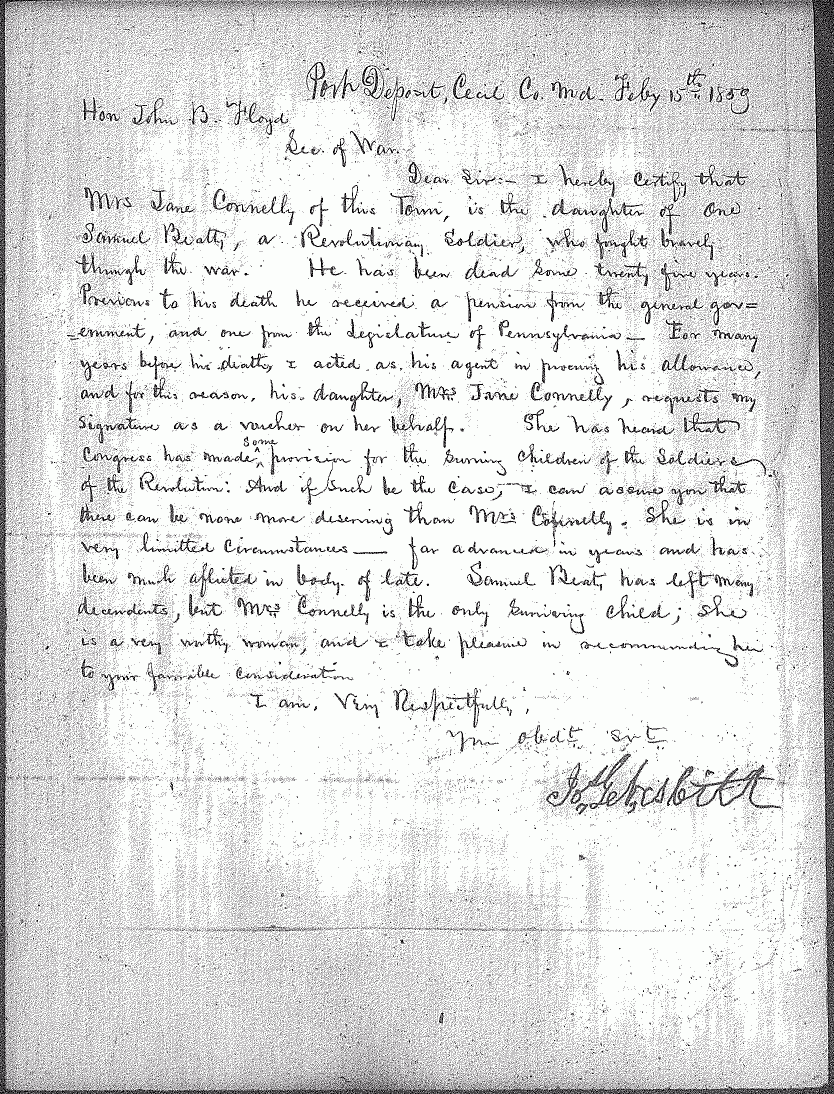 Port Deposit, Cecil Co. Md. Feby 15th 1859
Hon John B. Floyd
Sec. of War.
Dear Sir:- I hereby certify that
Mrs Jane Connelly of this Town, is the daughter of one
Samuel Beatty, a Revolutionary Soldier, who fought bravely
through the war. He has been dead some twenty five years.
Previous to his death he received a pension from the general gov=
=ernment, and one from the Legislature of Pennsylvania — For many
years before his death, I acted as his agent in procuring his allowance,
and for this reason, his daughter, Mrs Jane Connelly, requests my
signature as a voucher on her behalf. She has heard that
Congress has made some provision for the surviving children of the Soldiers
of the Revolution: And if such be the case, I can assure you that
there can be none more deserving than Mrs Connelly. She is in
very limitted circumstances — far advanced in years and has
been much aflicted in body of late. Samuel Beaty has left many
decendents, but Mrs Connelly is the only surviving child; she
is a very worthy woman, and I take pleasure in recommending her
to your favorable consideration
I am, Very Respectfully,
Your obdt Svt
Nesbitt